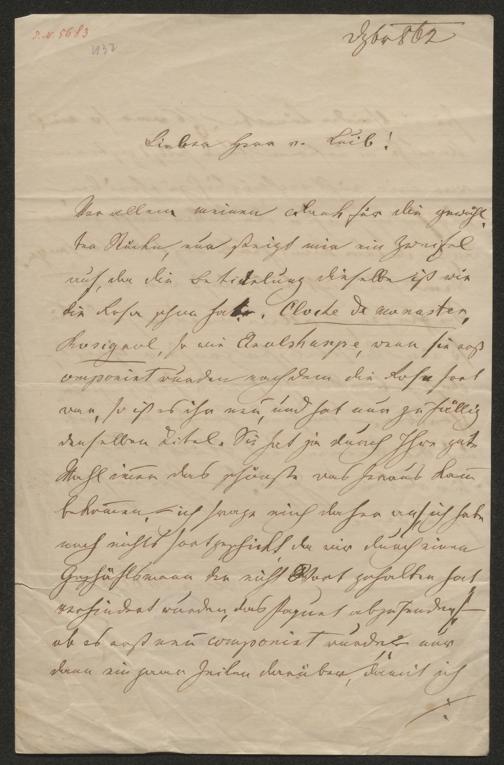 I.N. 5683
1132
Dzbr 862
Lieber Herr v. Leib!
Vor allem meinen Dank für die gewähl-
ten Stücke, nur steigt mir ein Zweifel
auf da die Betitelung dieselbe ist wie
die Rosa schon hat. Cloche de monaster,
Rosignol, so wie Aeolsharpe, wenn sie erst
componiert wurden nachdem die Rosa fort
war, so ist es ihr neu, und hat nur zufällig
denselben Titel. Sie hat ja durch Ihre gute
Wahl immer das schönste was heraus kam
bekommen, ich frage mich daher an, ich habe
noch nichts fortgeschickt da wir durch einen
Geschäftsmann der nicht Wort gehalten hat
verhindert wurden, das Paquet abzusenden,
ob es erst neu componiert wurde? nur
dann ein paar Zeilen darüber, damit ich